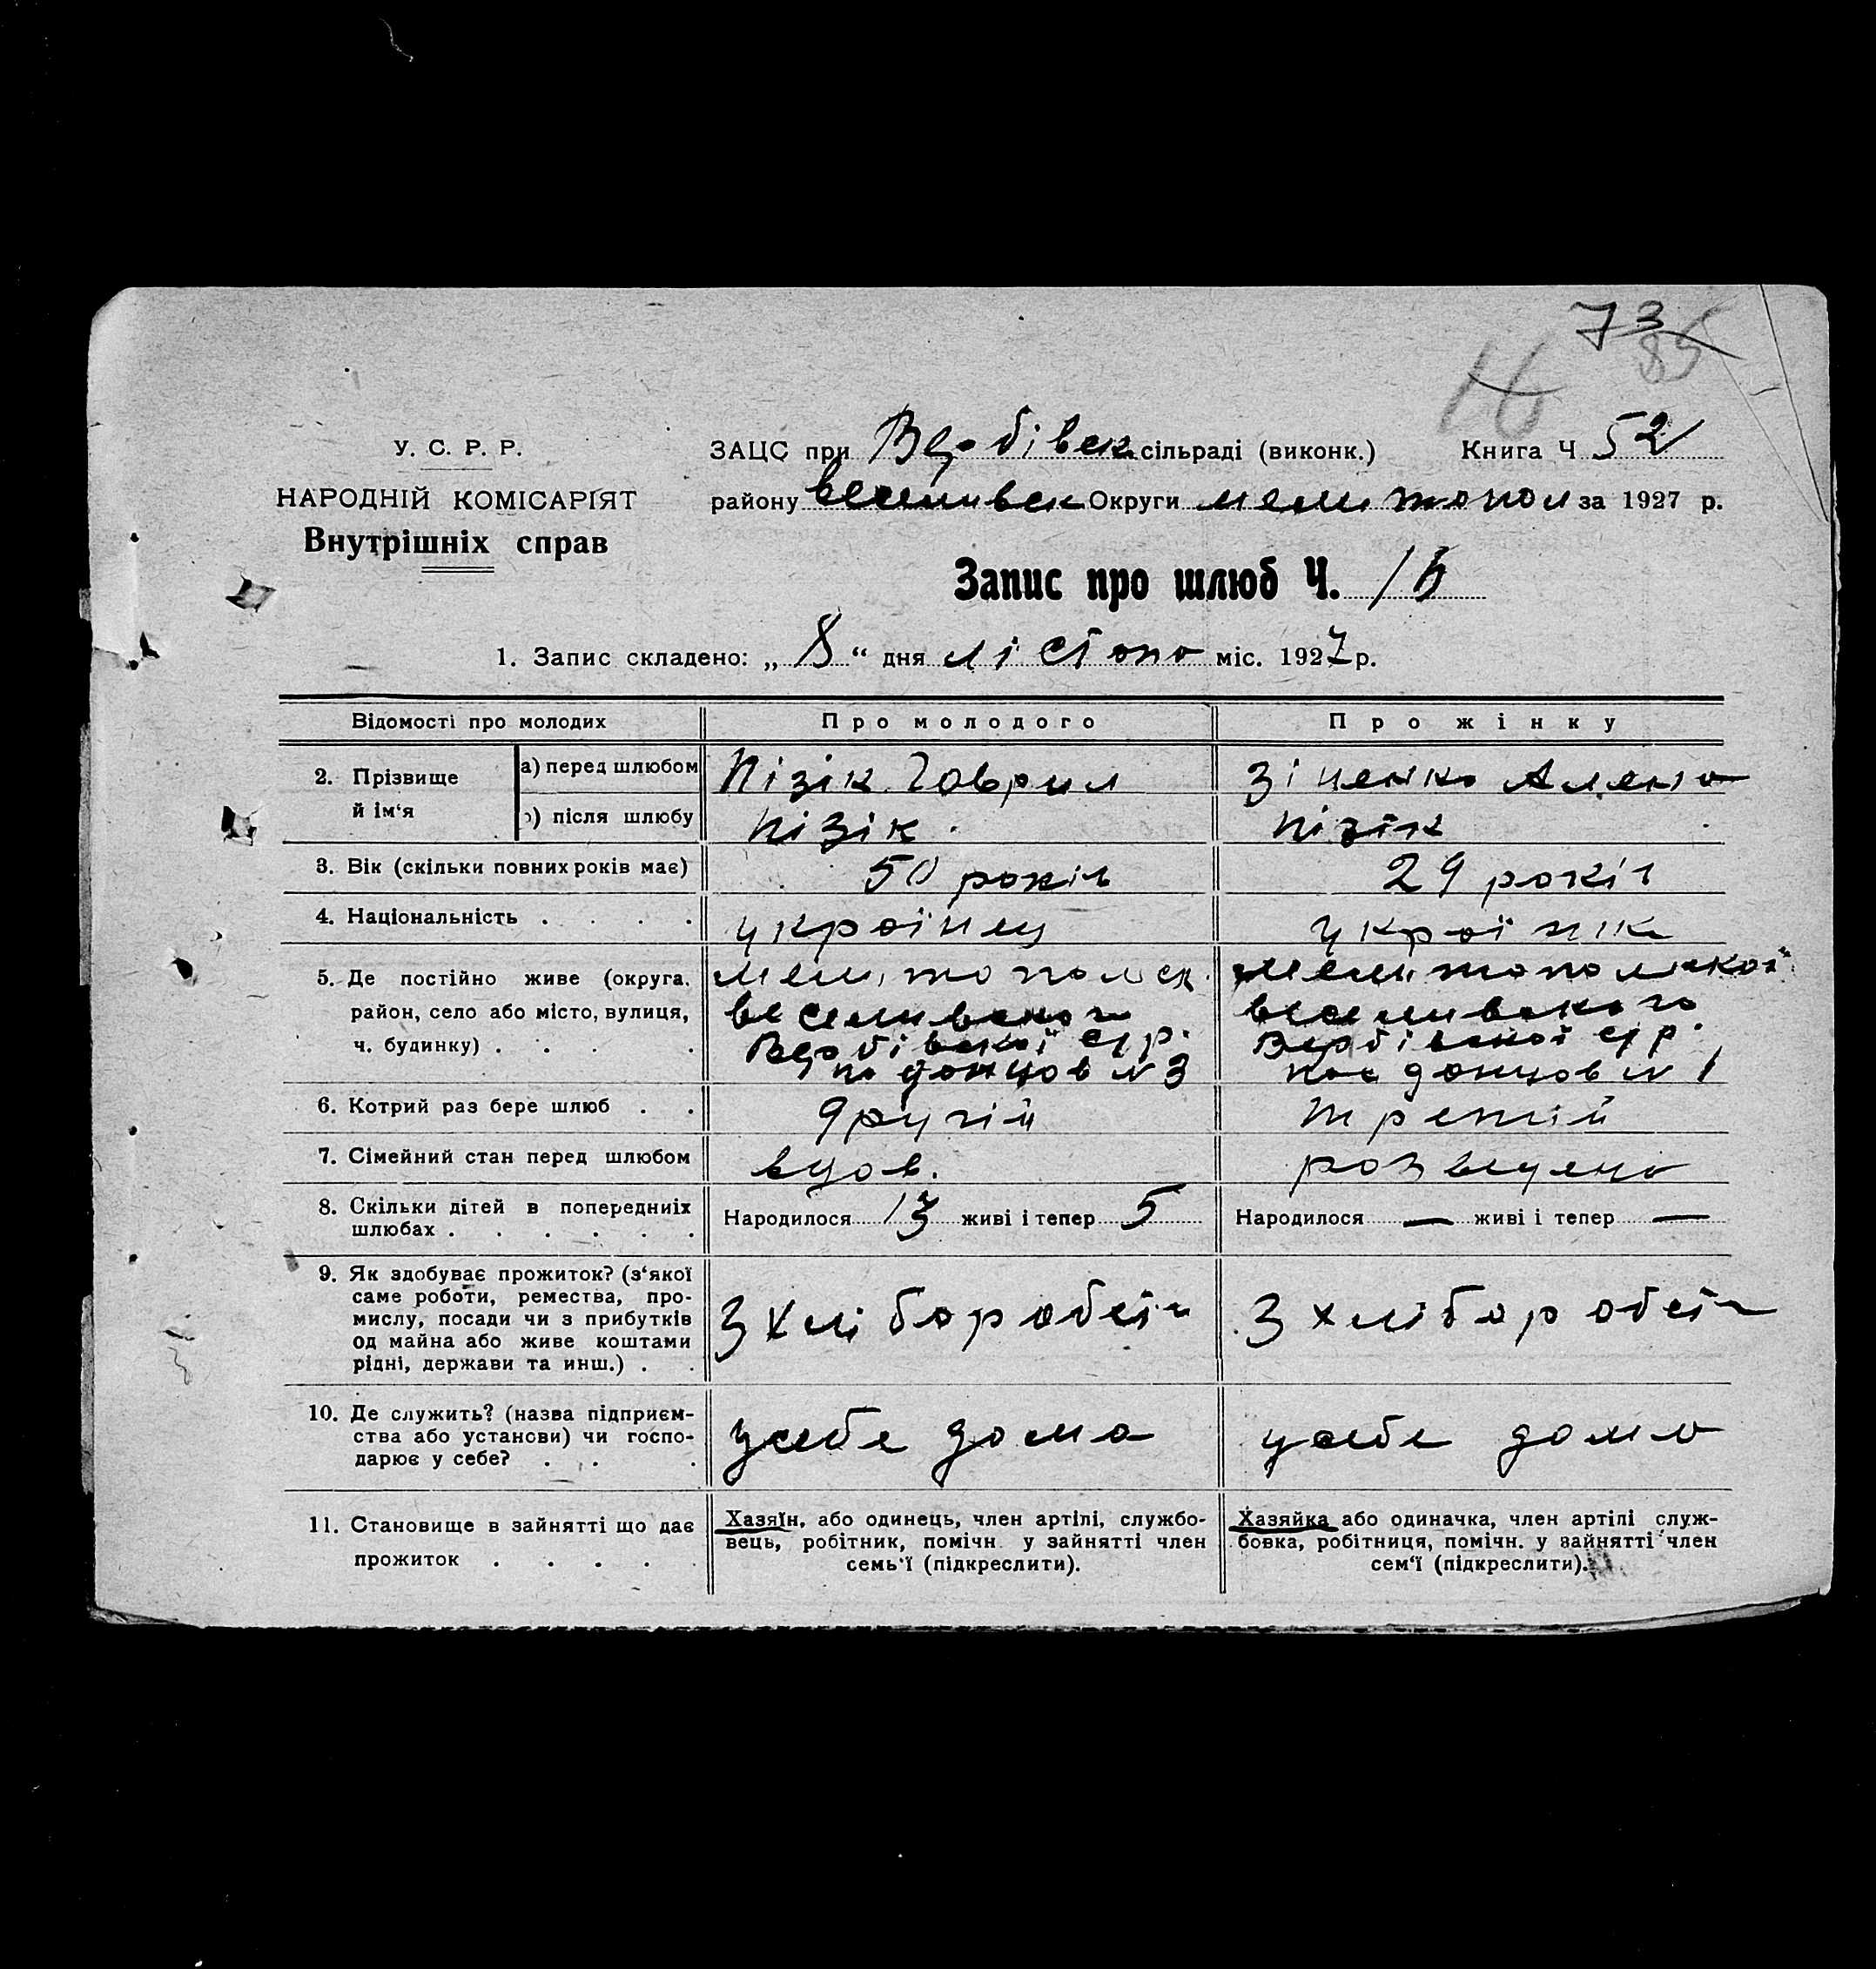 73
85
16
У. С. Р. Р.
НАРОДНІЙ КОМІСАРІЯТ
Внутрішніх справ
ЗАЦС при Вербівск сільраді (виконк.) Книга Ч 52
району веселивск Округи мелитопол за 1927 р.
Запис про шлюб Ч.
1. Запис складено: „ 8 “ дня лістопа міс. 1927 р.
Відомості про молодих Про молодого Про жінку
2. Прізвище й ім‘я а) перед шлюбом Пізік Гаврил Зіненко Алена
б) після шлюбу пізік пізік
3. Вік (скільки повних років має) 50 років 29 років
4. Національність українец українка
5. Де постійно живе (округа, мелитопольск. мелитопольскоі
район, село або місто, вулиця, веселивского веселивского
ч. будинку) Вербівскоі с/р. Вербівскоі с/р.
донцов № 3 донцов № 1
6. Котрий раз бере шлюб другій третій
7. Сімейний стан перед шлюбом вдов. розведена
8. Скільки дітей в попередниіх Народилося 13 живі і тепер 5 Народилося — живі і тепер —
шлюбах
9. Як здобуває прожиток? (з‘якої
саме роботи, ремества, про-
мислу, посади чи з прибутків З хліборобст З хліборобст
од майна або живе коштами
рідні, держави та инш.)
10. Де служить? (назва підприєм-
ства або установи) чи госпо- усебе дома усебе дома
дарює у себе?
11. Становище в зайнятті що дає Хазяїн, або одинець, член артілі, службо- Хазяйка або одиначка, член артілі служ-
прожиток вець, робітник, помічн. у зайнятті член бовка, робітниця, помічн. у зайнятті член
семь‘ї (підкреслити). сем‘ї (підкреслити).